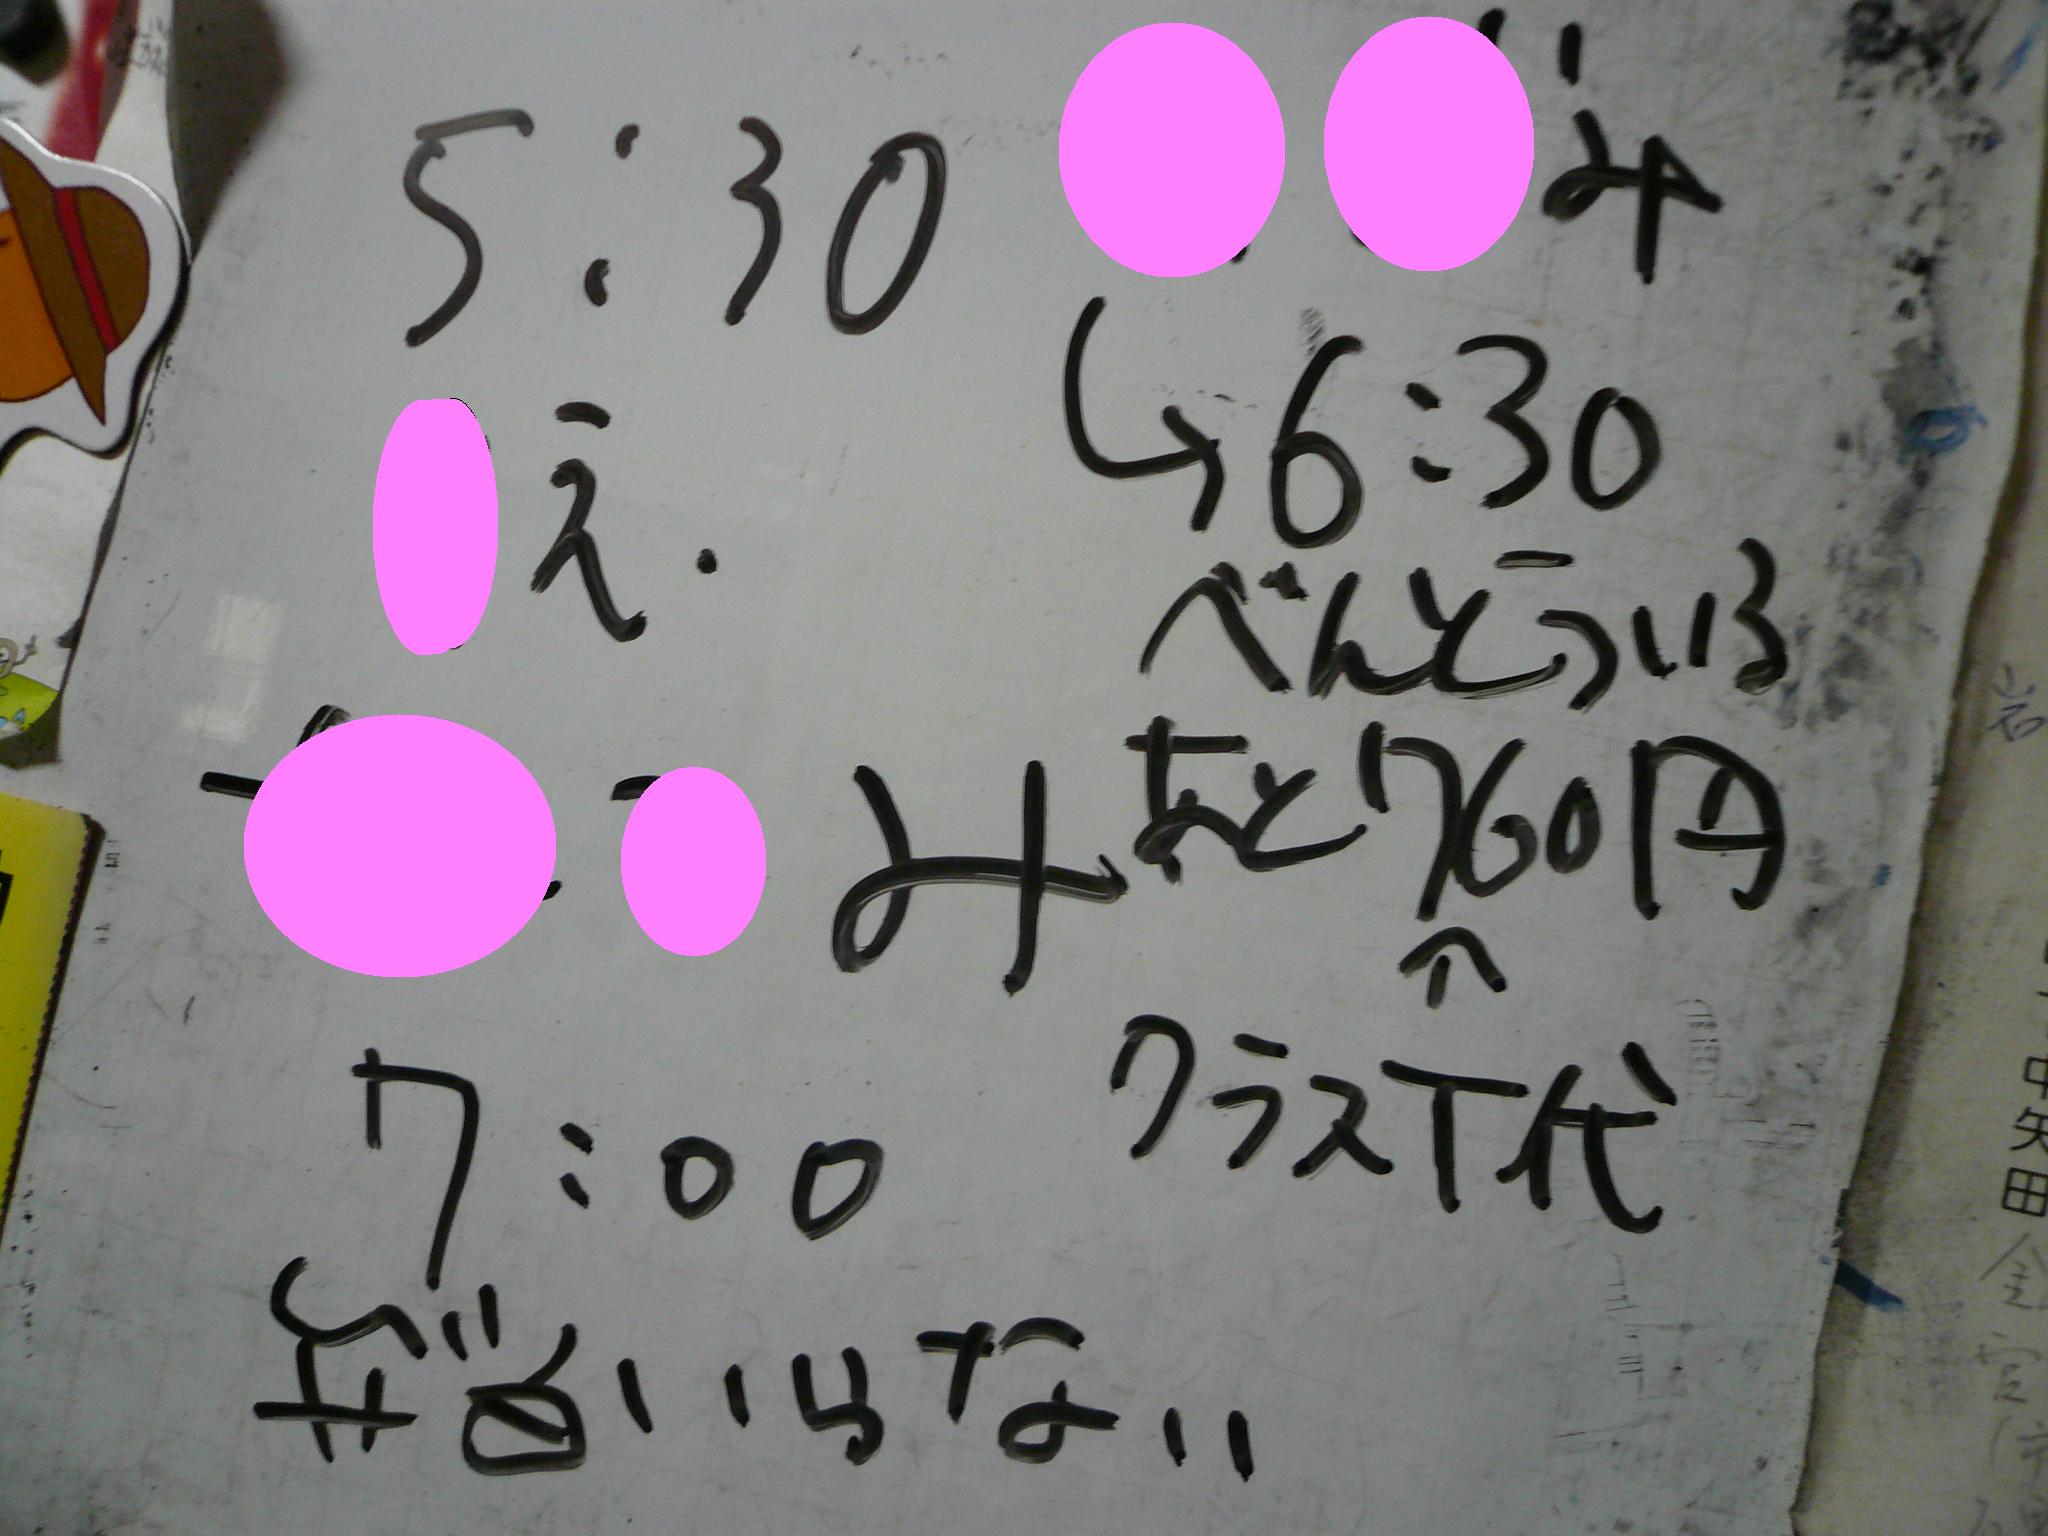 5:30
え.
み
7:00
弁当いらない
み
6:30
べんとういる
あと760円
↑
クラスT代
中矢田